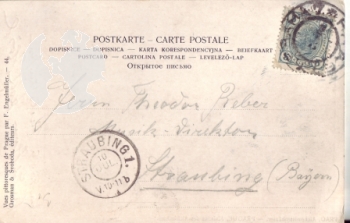 POSTKARTE - CARTE POSTALE
DOPISNICE — DOPISNICA — KARTA KORESPONDENCYJNA — BRIEFKAART
POSTCARD — CARTOLINA POSTALE — LEVELEZŐ-LAP
Открытое письмо
Herrn Theodor
Musik-Direktor
Straubing (Bayern)
STRAUBING 1.
Vues pittoresques de Prague par F. Engelmüller. — 46.